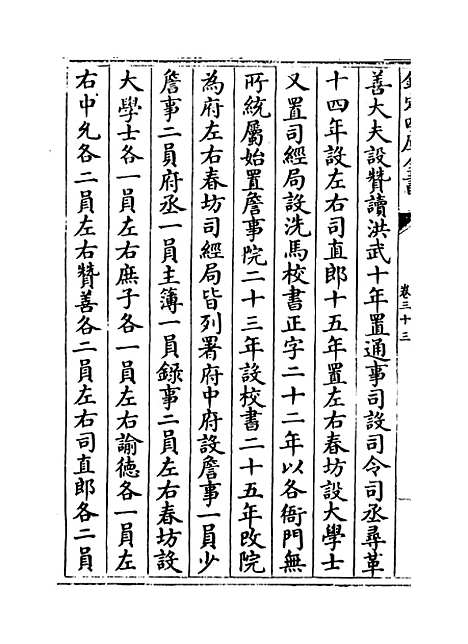 欽定四庫全書
卷三十三
善大夫設贊讀洪武十年置通事司設司令司丞尋革
十四年設左右司直郎十五年置左右春坊設大學士
又置司經局設洗馬校書正字二十二年以各衙門無
所統屬始置詹事院二十三年設校書二十五年改院
為府左右春坊司經局皆列署府中府設詹事一員少
詹事二員府丞一員主簿一員錄事二員左右春坊設
大學士各一員左右庶子各一員左右諭徳各一員左
右中允各二員左右贊善各二員左右司直郎各二員